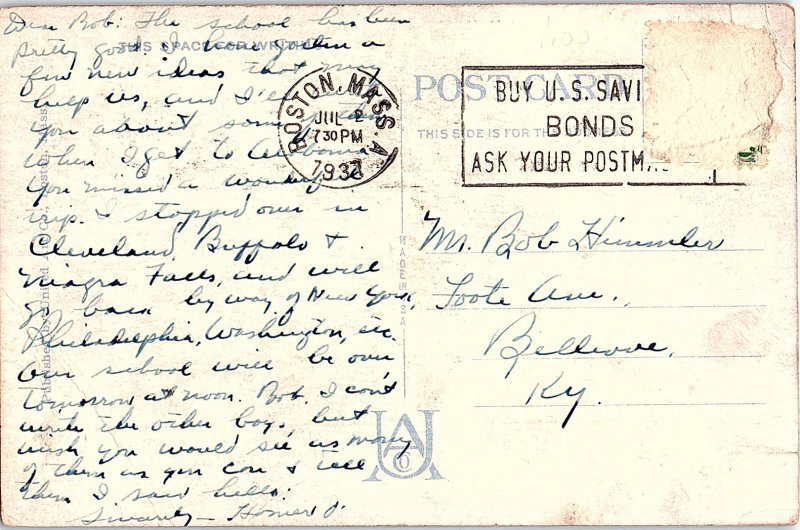 Dear Bob: The school has been
pretty good. I have gotten a
few new ideas that may
help us, and I'll tell
you about some of them
when I get to
You missed a wonderful
trip. I stopped over in
Cleveland, Buffalo &
Niagra Falls, and will
go back by way of New York,
Philadelphia, Washington, etc.
Our school will be over
tomorrow at noon. Bob, I can't
write the other boys, but
wish you would see as many
of them as you can & tell
them I said hello.
Sincerely - Homer J.
THIS SPACE FOR WRITING
Published by United Art Co., Boston, Mass.
MADE IN U.S.A.
UA Co
POST CARD
THIS SIDE IS FOR TH
BOSTON, MASS. A
JUL 2
730 PM
1937
BUY U.S. SAVI
BONDS
ASK YOUR POSTMA
Mr. Bob Himmler
Foote Ave.,
Bellevue,
Ky.